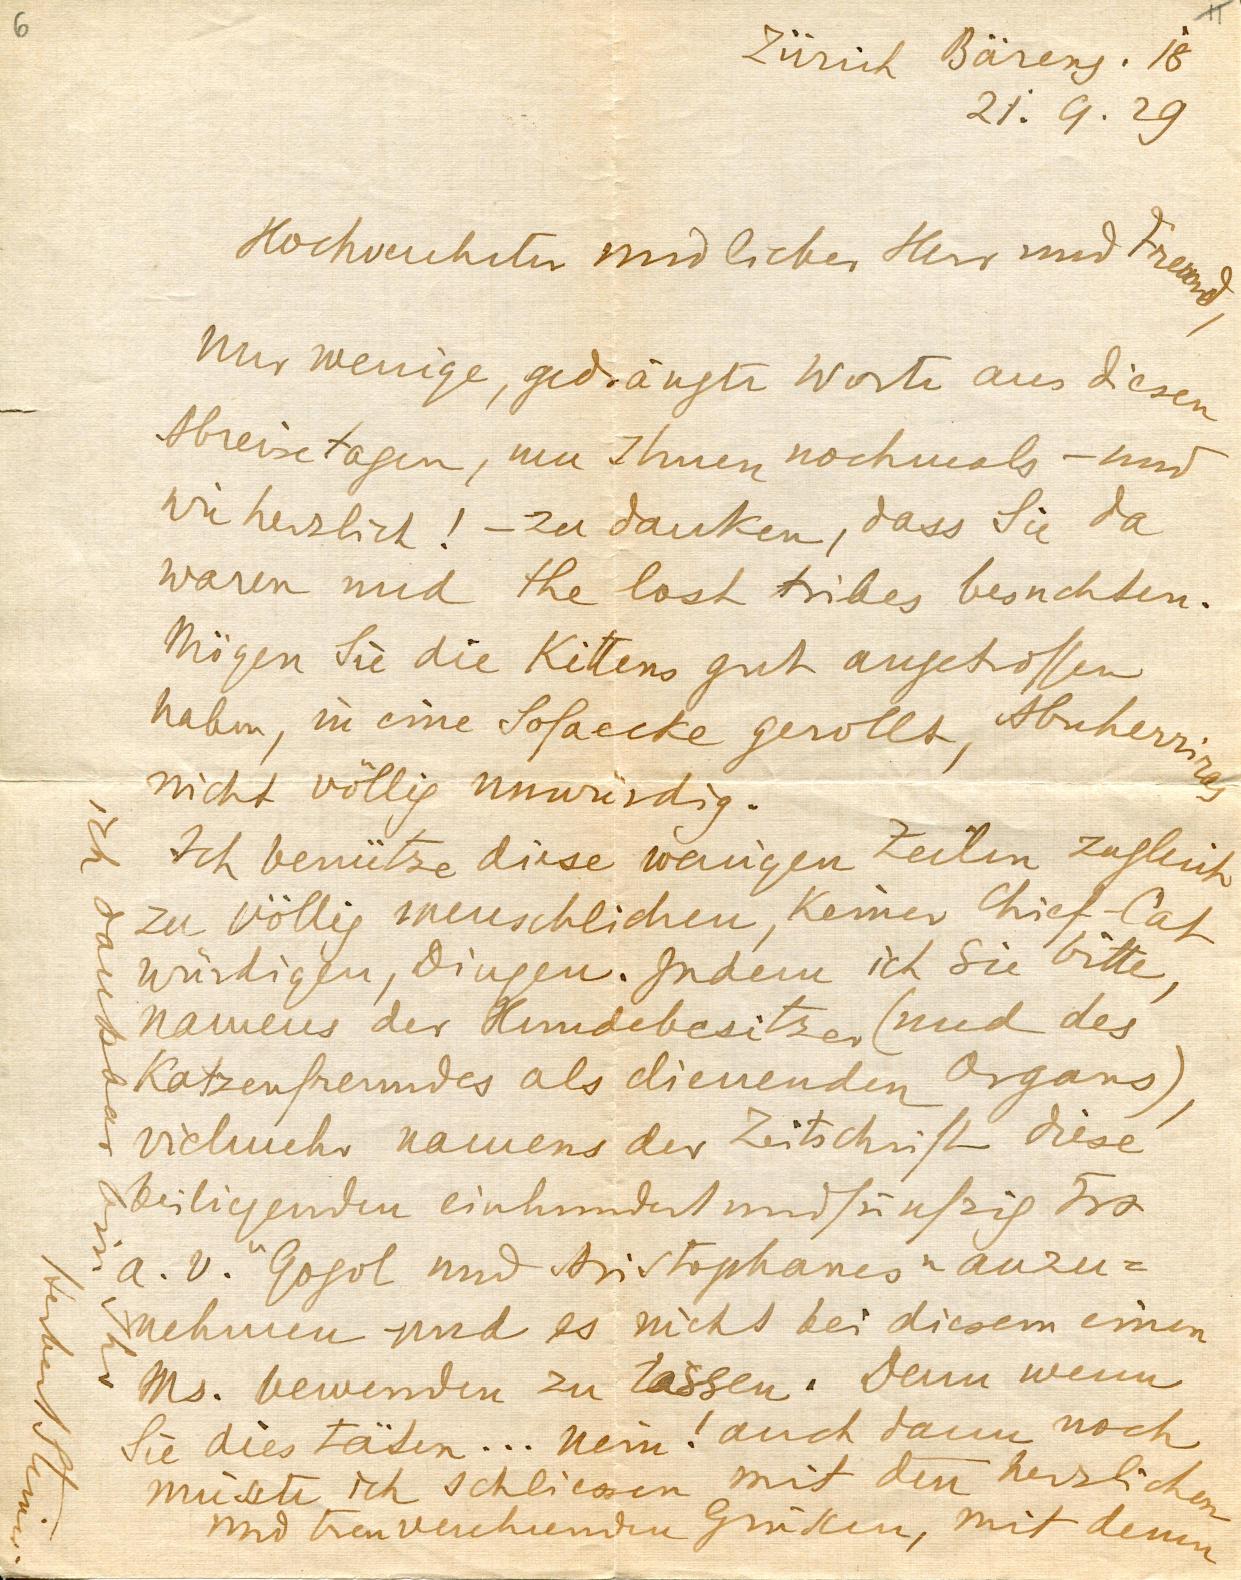 6
Zürich Bäreng. 18
21. 9. 29
Hochverehrter und lieber Herr und Freund,
Nur wenige, gedrängte Worte aus diesen
Abreisetagen, um Ihnen nochmals – und
wie herzlich! – zu danken, dass Sie da
waren und the lost tribes besuchten.
Mögen Sie die Kittens gut angetroffen
haben, in eine Sofaecke gerollt,
nicht völlig unwürdig.
Ich benütze diese wenigen Zeilen zugleich
zu völlig menschlichen, keiner Chief-Cat
würdigen, Dingen. Indem ich Sie bitte,
namens der Hundebesitzer (und des
Katzenfreundes als dienenden Organs),
vielmehr namens der Zeitschrift diese
beiligenden einhundertundfünfzig Frs
a. v. "Gogol und Aristophanes" anzu=
nehmen und es nicht bei diesem einen
Ms. bewenden zu lassen. Denn wenn
Sie dies täten... nein! auch dann noch
müsste ich schliessen mit den herzlichen
und treuverehrenden Grüssen, mit denen
ich dankbar bin Ihr
Herbert Steiner.